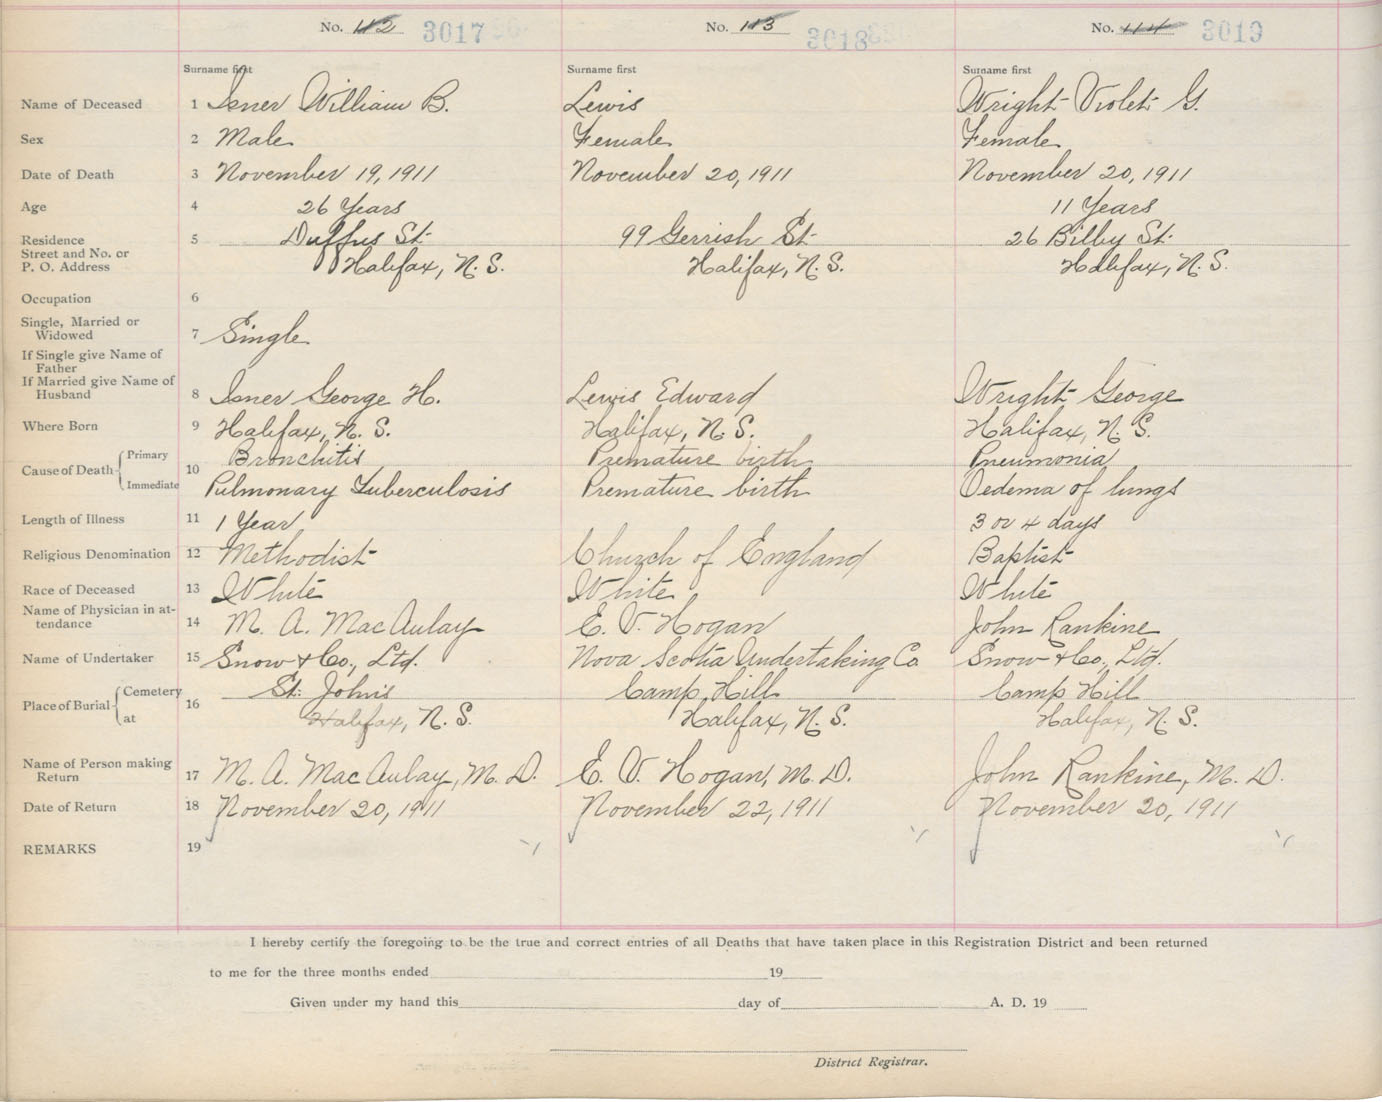 No. 112 3017 No. 113 3018 No. 114 3019
Surname first Surname first Surname first
Name of Deceased 1 Isner William B. Lewis Wright Violet G.
Sex 2 Male Female Female
Date of Death 3 November 19, 1911 November 20, 1911 November 20, 1911
Age 4 26 Years 11 Years
Residence 5 Duffus St. 99 Gerrish St. 26 Bilby St.
Street and No. or
P. O. Address Halifax, N. S. Halifax, N. S. Halifax, N. S.
Occupation 6
Single, Married or
Widowed 7 Single
If Single give Name of
Father
If Married give Name of
Husband 8 Isner George H. Lewis Edward Wright George
Where Born 9 Halifax, N. S. Halifax, N. S. Halifax, N. S.
Cause of Death Primary 10 Bronchitis Premature birth Pneumonia
Immediate Pulmonary Tuberculosis Premature birth Oedema of lungs
Length of Illness 11 1 Year 3 or 4 days
Religious Denomination 12 Methodist Church of England Baptist
Race of Deceased 13 White White White
Name of Physician in at-
tendance 14 M. A. MacAulay E. V. Hogan John Rankine
Name of Undertaker 15 Snow & Co., Ltd. Nova Scotia Undertaking Co Snow & Co., Ltd.
Place of Burial Cemetery 16 St. John's Camp Hill Camp Hill
at Halifax, N. S. Halifax, N. S. Halifax, N. S.
Name of Person making
Return 17 M. A. MacAulay, M. D. E. V. Hogan, M. D. John Rankine, M. D.
Date of Return 18 November 20, 1911 November 22, 1911 November 20, 1911
REMARKS 19
I hereby certify the foregoing to be the true and correct entries of all Deaths that have taken place in this Registration District and been returned
to me for the three months ended 19
Given under my hand this day of A. D. 19
District Registrar.